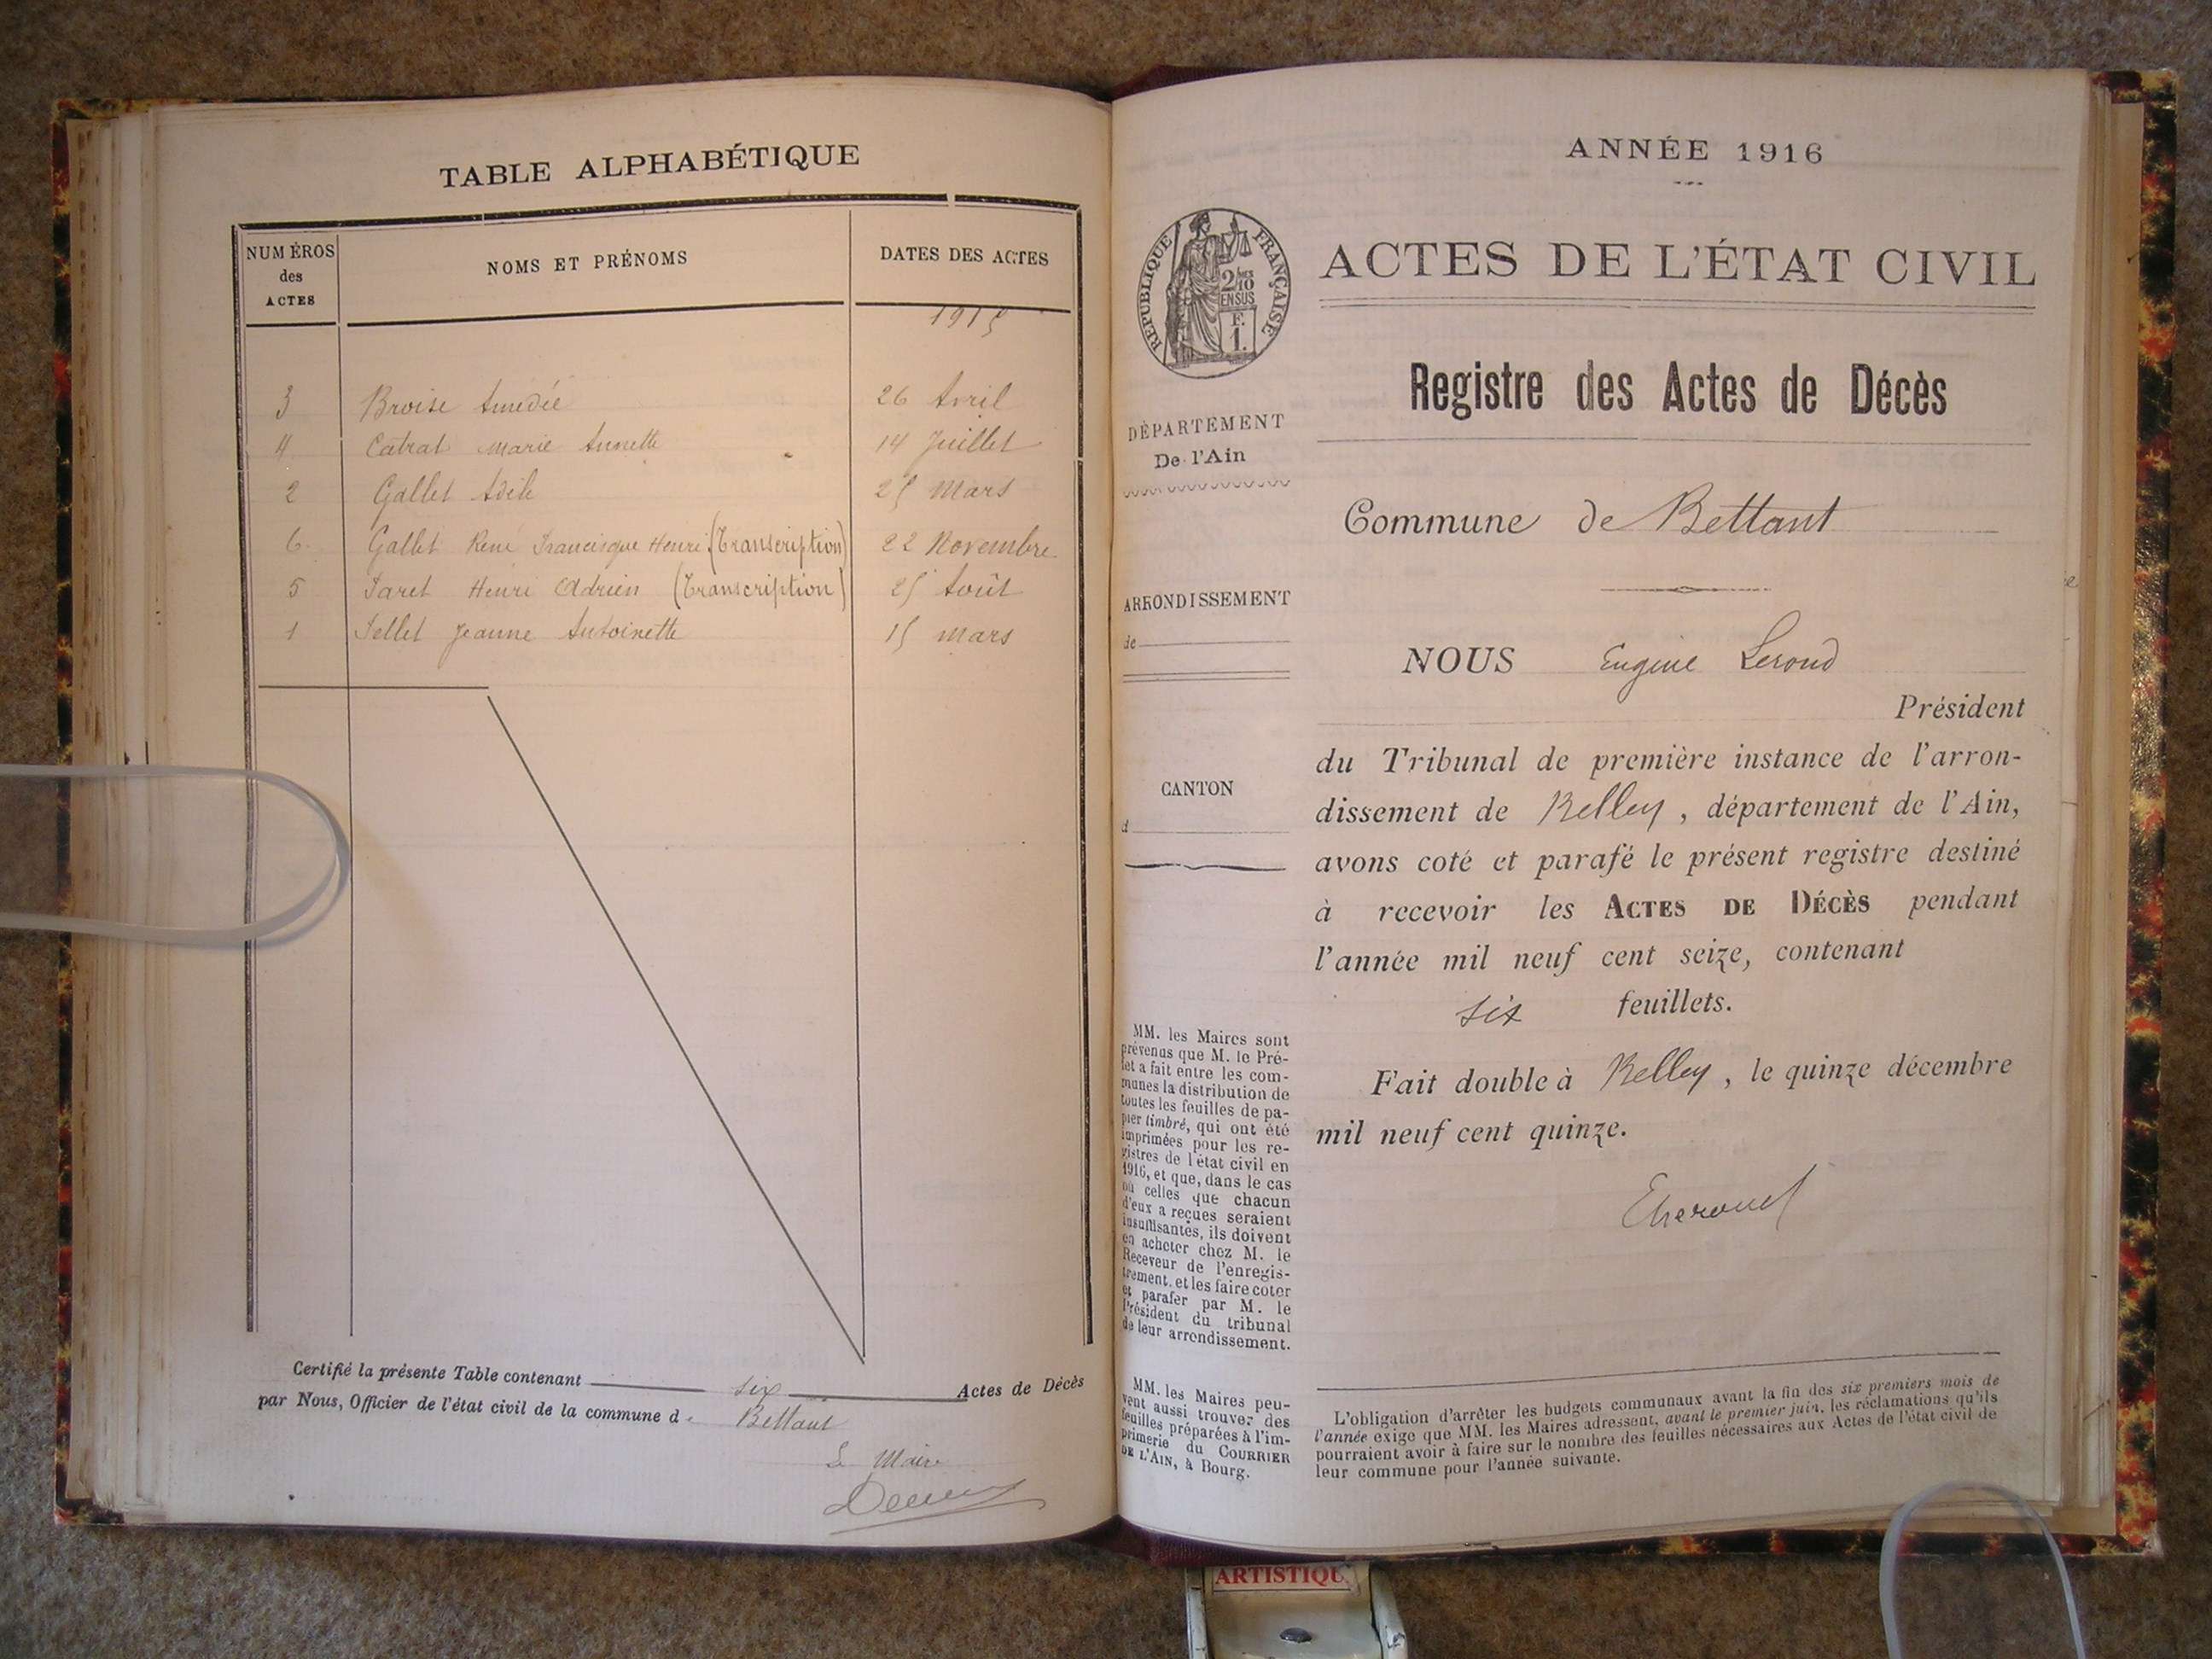 TABLE ALPHABÉTIQUE
NUMÉROS
des
ACTES
NOMS ET PRÉNOMS
DATES DES ACTES
1915
3 Broise Amedée 26 Avril
4 Catrat Marie Annette 14 Juillet
2 Gallet Adèle 25 Mars
6 Gallet René Francisque Henri (Transcription) 22 Novembre
5 Jaret Henri Adrien (Transcription) 25 Août
1 Sellet Jeanne Antoinette 15 Mars
Certifié la présente Table contenant six Actes de Décès
par Nous, Officier de l'état civil de la commune de Bettant
Le Maire
ANNÉE 1916
RÉPUBLIQUE FRANÇAISE
2/10
EN SUS
F.
1.
ACTES DE L'ÉTAT CIVIL
Registre des Actes de Décès
DÉPARTEMENT
De l'Ain
Commune de Bettant
ARRONDISSEMENT
de
NOUS Eugène Leroud
Président
du Tribunal de première instance de l'arron-
dissement de Belley, département de l'Ain,
avons coté et parafé le présent registre destiné
à recevoir les ACTES DE DÉCÈS pendant
l'année mil neuf cent seize, contenant
six feuillets.
Fait double à Belley, le quinze décembre
mil neuf cent quinze.
CANTON
d
MM. les Maires sont
prévenus que M. le Pré-
fet a fait entre les com-
munes la distribution de
toutes les feuilles de pa-
pier timbré, qui ont été
imprimées pour les re-
gistres de l'état civil en
1916, et que, dans le cas
où celles que chacun
d'eux a reçues seraient
insuffisantes, ils doivent
en acheter chez M. le
Receveur de l'enregis-
trement, et les faire coter
et parafer par M. le
Président du tribunal
de leur arrondissement.
MM. les Maires peu-
vent aussi trouver des
feuilles préparées à l'im-
primerie du COURRIER
DE L'AIN, à Bourg.
L'obligation d'arrêter les budgets communaux avant la fin des six premiers mois de
l'année exige que MM. les Maires adressent, avant le premier juin, les réclamations qu'ils
pourraient avoir à faire sur le nombre des feuilles nécessaires aux Actes de l'état civil de
leur commune pour l'année suivante.
ARTISTIQU